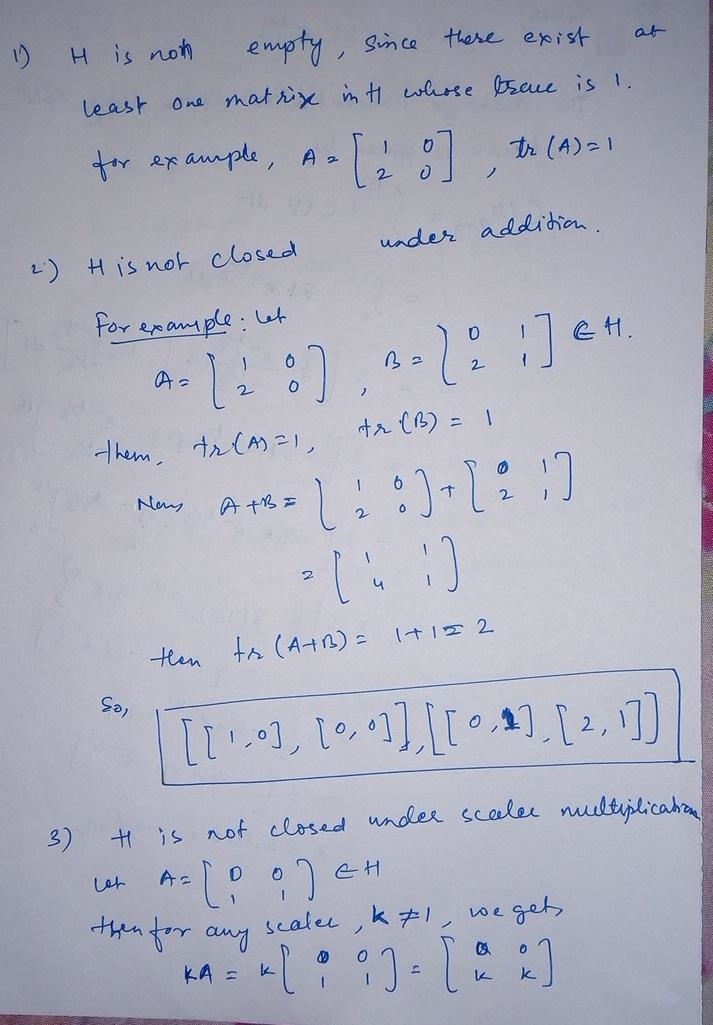 1) H is not empty, since there exist at
least one matrix in H whose trace is 1.
for example, A = [1 0; 2 0], tr(A)=1
2) H is not closed under addition.
For example: let
A = [1 0; 2 0], B = [0 1; 2 1] ∈ H.
then, tr(A)=1, tr(B) = 1
Now A+B = [1 0; 2 0] + [0 1; 2 1]
= [1 1; 4 1]
then tr(A+B) = 1+1 = 2
So, [[1,0],[0,0]],[[0,1],[2,1]]
3) H is not closed under scaler multiplication
Let A = [0 0; 1 1] ∈ H
then for any scaler, k ≠ 1, we gets
KA = k[0 0; 1 1] = [0 0; k k]